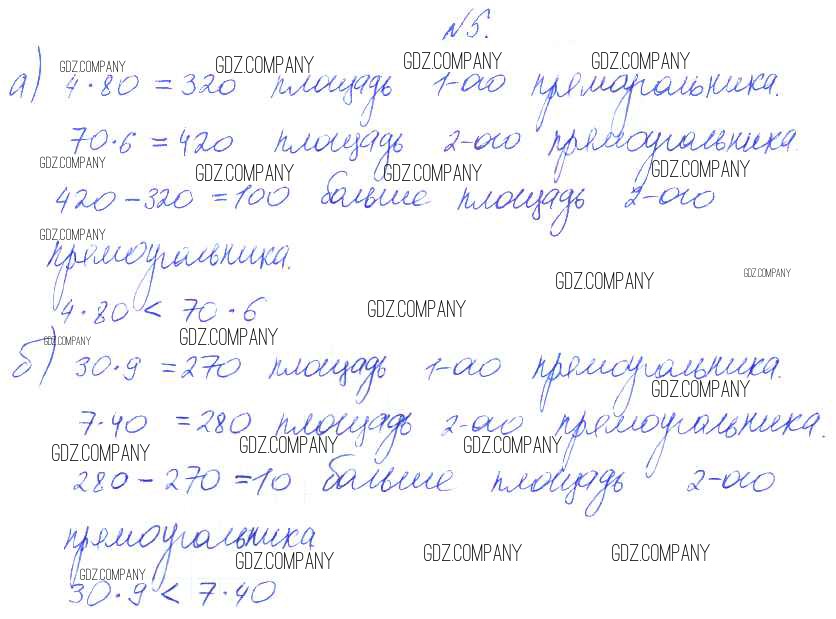 №5.
GDZ.COMPANY GDZ.COMPANY GDZ.COMPANY GDZ.COMPANY
а) 4·80 = 320 площадь 1-ого прямоугольника.
70·6 = 420 площадь 2-ого прямоугольника.
GDZ.COMPANY GDZ.COMPANY GDZ.COMPANY GDZ.COMPANY
420 - 320 = 100 больше площадь 2-ого
GDZ.COMPANY
прямоугольника.
GDZ.COMPANY GDZ.COMPANY
4·80 < 70·6 GDZ.COMPANY
GDZ.COMPANY GDZ.COMPANY
б) 30·9 = 270 площадь 1-ого прямоугольника.
GDZ.COMPANY
7·40 = 280 площадь 2-ого прямоугольника.
GDZ.COMPANY GDZ.COMPANY GDZ.COMPANY
280 - 270 = 10 больше площадь 2-ого
прямоугольника
GDZ.COMPANY GDZ.COMPANY GDZ.COMPANY
GDZ.COMPANY
30·9 < 7·40